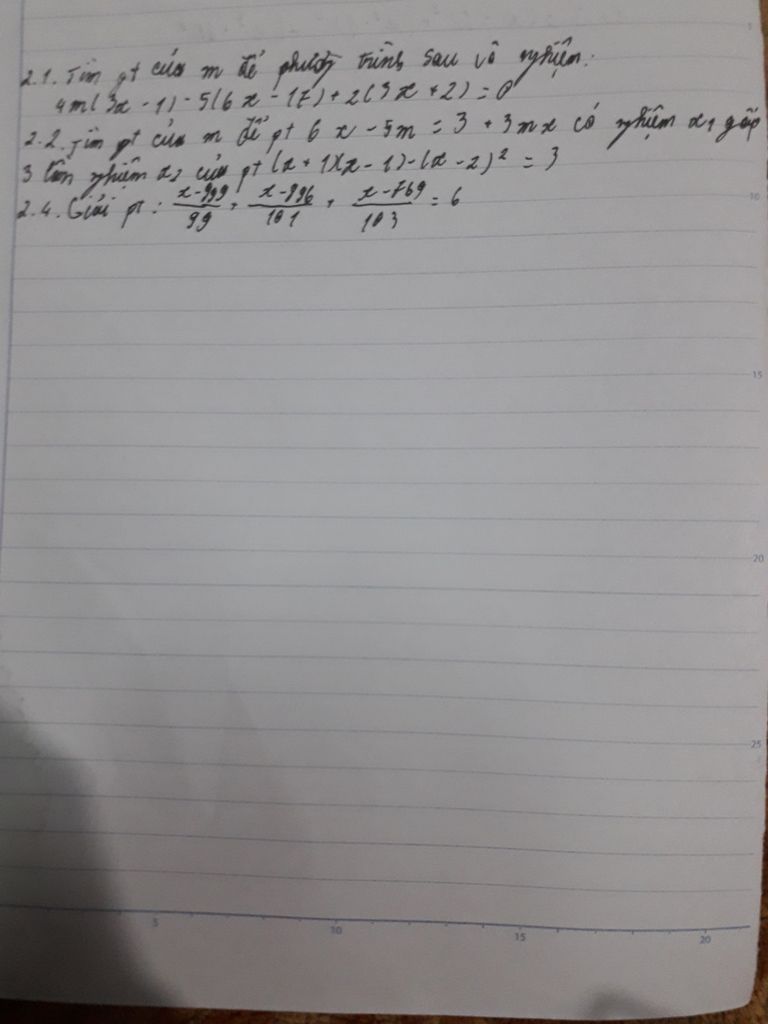 2.1. Tìm gt của m để phương trình sau vô nghiệm:
4m(3x - 1) - 5(6x - 17) + 2(3x + 2) = 0
2.2. Tìm gt của m để pt 6x - 5m = 3 + 3mx có nghiệm x1 gấp
3 lần nghiệm x2 của pt (x + 1)(x - 1) - (x - 2)² = 3
2.4. Giải pt: x-999/99 + x-896/101 + x-769/103 = 6
5
10
15
20
25
5
10
15
20